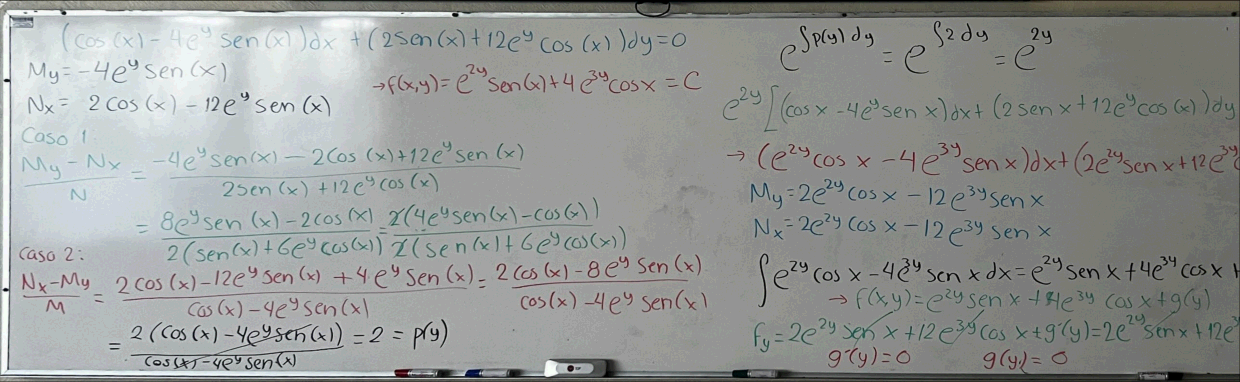 (cos(x) - 4e^y sen(x))dx + (2sen(x) + 12e^y cos(x))dy = 0
My = -4e^y sen(x)
Nx = 2cos(x) - 12e^y sen(x)
→ f(x,y) = e^{2y} sen(x) + 4e^{3y} cos x = C
Caso 1
(My - Nx)/N = (-4e^y sen(x) - 2cos(x) + 12e^y sen(x))/(2sen(x) + 12e^y cos(x))
= (8e^y sen(x) - 2cos(x))/(2(sen(x) + 6e^y cos(x))) = 2(4e^y sen(x) - cos(x))/(2(sen(x) + 6e^y cos(x)))
Caso 2:
(Nx - My)/M = (2cos(x) - 12e^y sen(x) + 4e^y sen(x))/(cos(x) - 4e^y sen(x)) = (2cos(x) - 8e^y sen(x))/(cos(x) - 4e^y sen(x))
= 2(cos(x) - 4e^y sen(x))/(cos(x) - 4e^y sen(x)) = 2 = p(y)
e^{∫p(y)dy} = e^{∫2dy} = e^{2y}
e^{2y}[(cos x - 4e^y sen x)dx + (2sen x + 12e^y cos(x))dy
→ (e^{2y} cos x - 4e^{3y} sen x)dx + (2e^{2y} sen x + 12e^{3y}
My = 2e^{2y} cos x - 12e^{3y} sen x
Nx = 2e^{2y} cos x - 12e^{3y} sen x
∫e^{2y} cos x - 4e^{3y} sen x dx = e^{2y} sen x + 4e^{3y} cos x +
→ f(x,y) = e^{2y} sen x + 4e^{3y} cos x + g(y)
fy = 2e^{2y} sen x + 12e^{3y} cos x + g'(y) = 2e^{2y} sen x + 12e^{3y}
g'(y) = 0 g(y) = 0